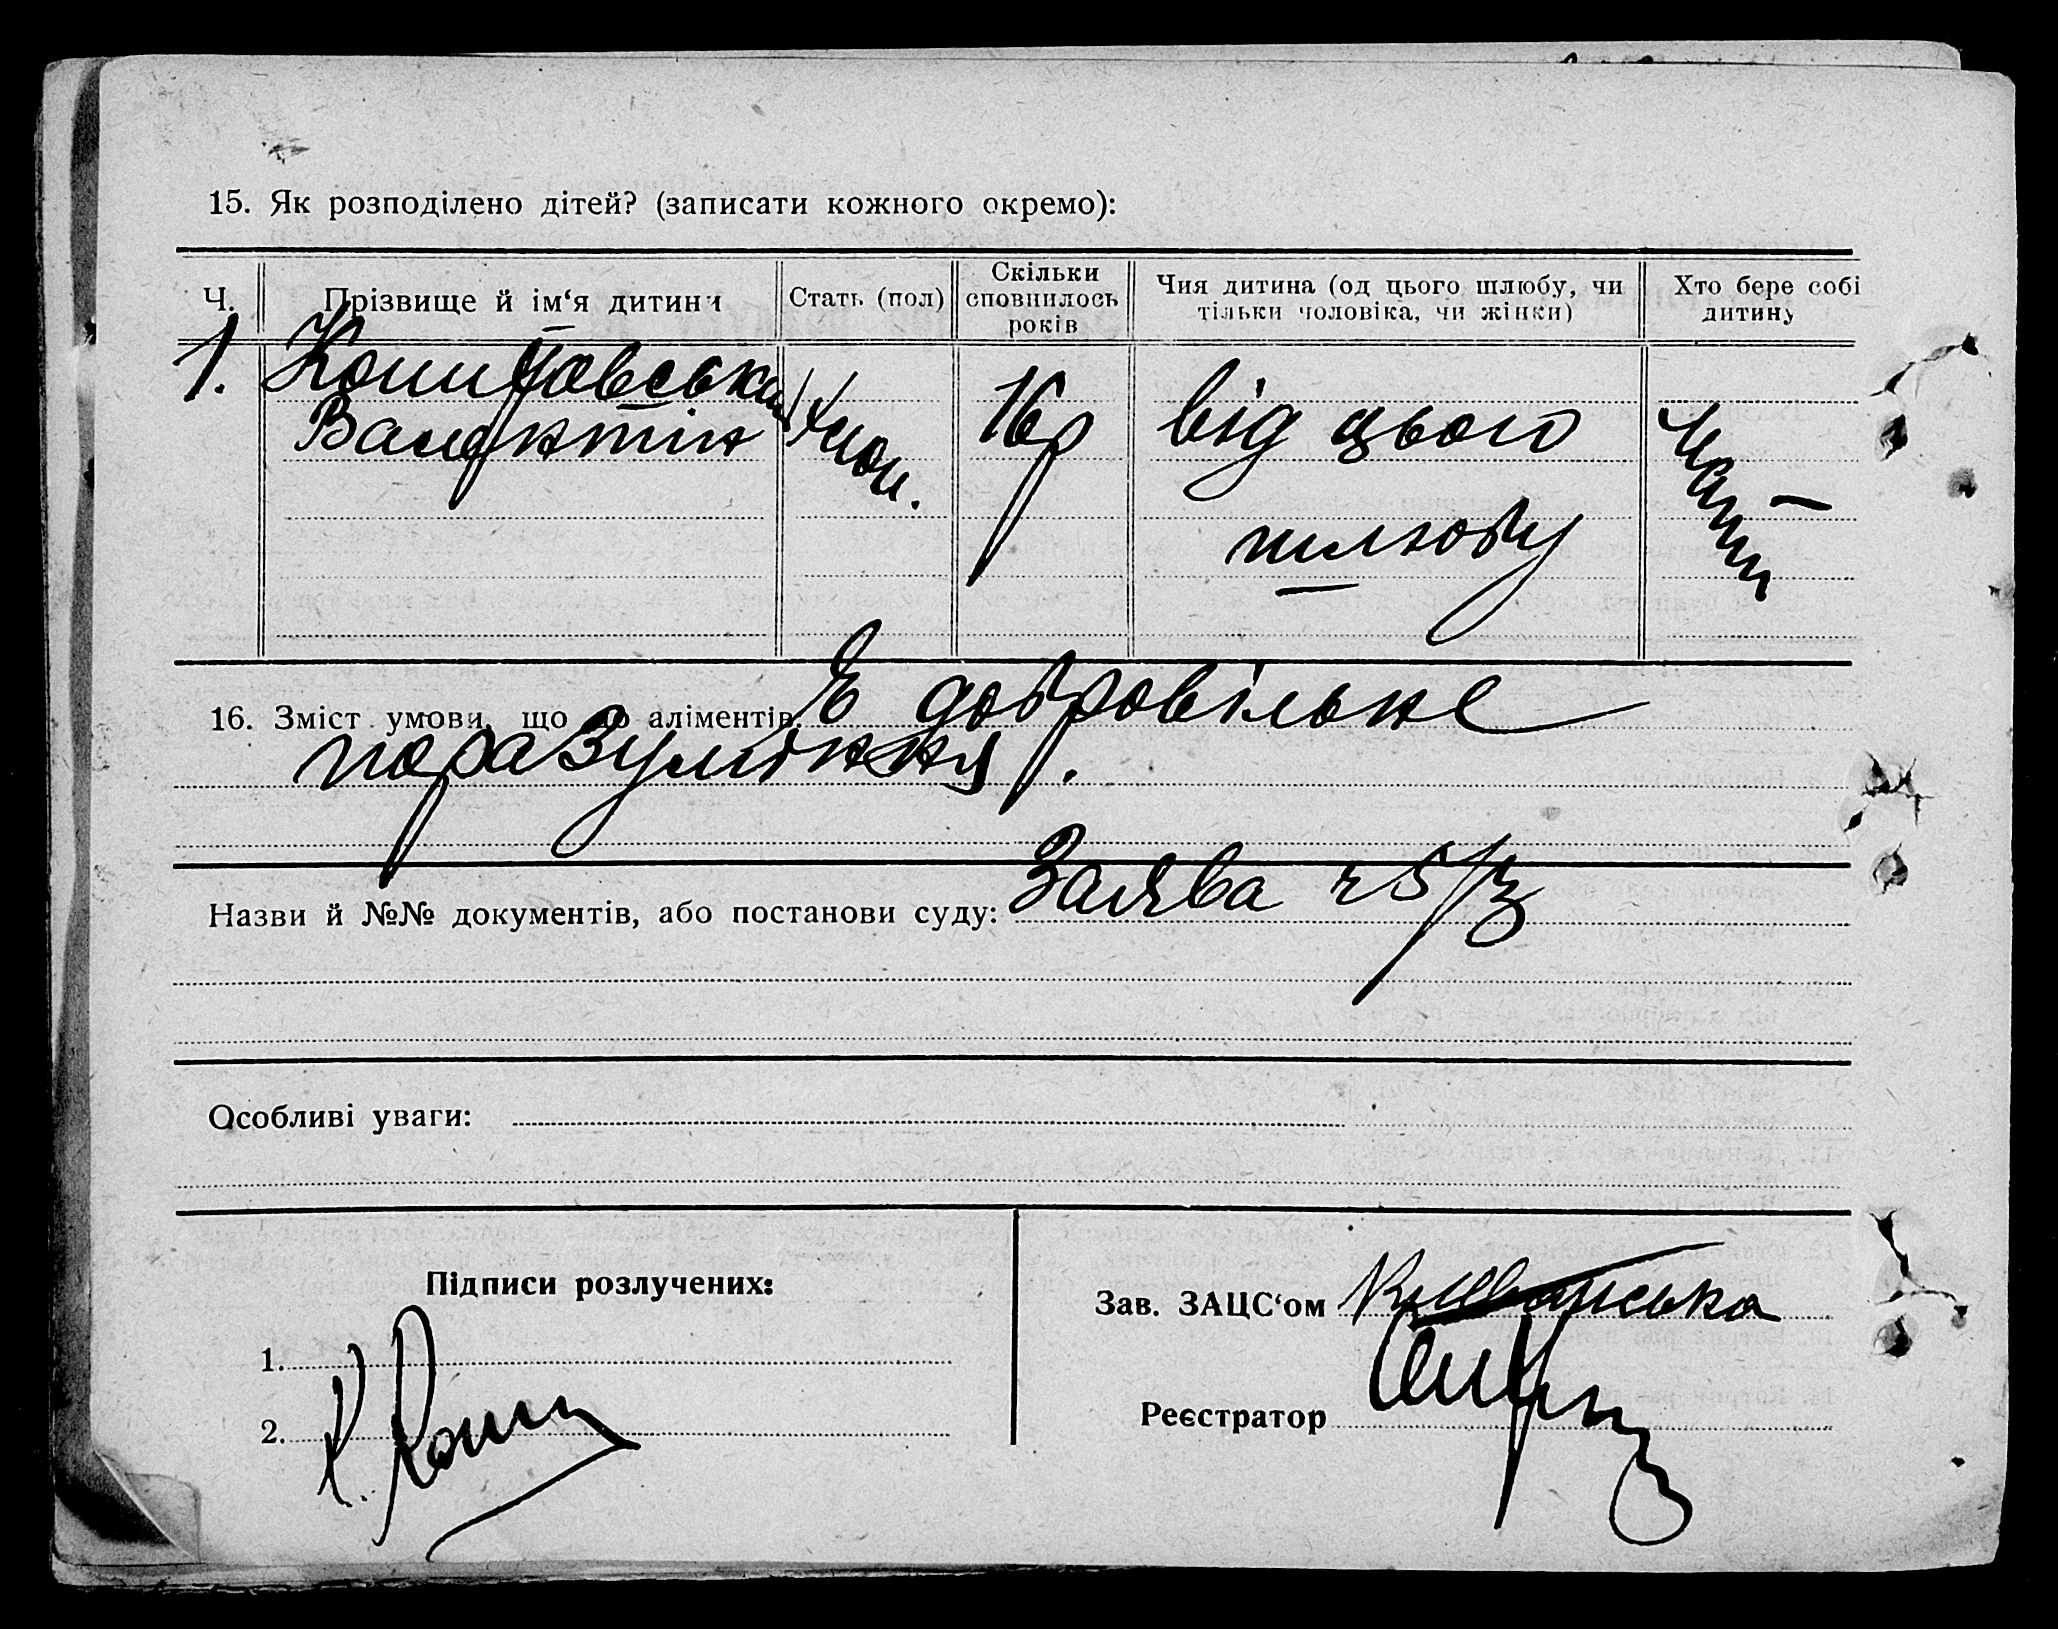 15. Як розподілено дітей? (записати кожного окремо):
Ч. Прізвище й ім‘я дитини Стать (пол) Скільки сповнилось років Чия дитина (од цього шлюбу, чи тільки чоловіка, чи жінки) Хто бере собі дитину
1.
Валентін чол. 16р від цього
шлюбу
16. Зміст умови, що до аліментів: Є добровільне
поразуміння.
Назви й №№ документів, або постанови суду: Заява
Особливі уваги:
Підписи розлучених:
Зав. ЗАЦС‘ом
1.
2.
Реєстратор